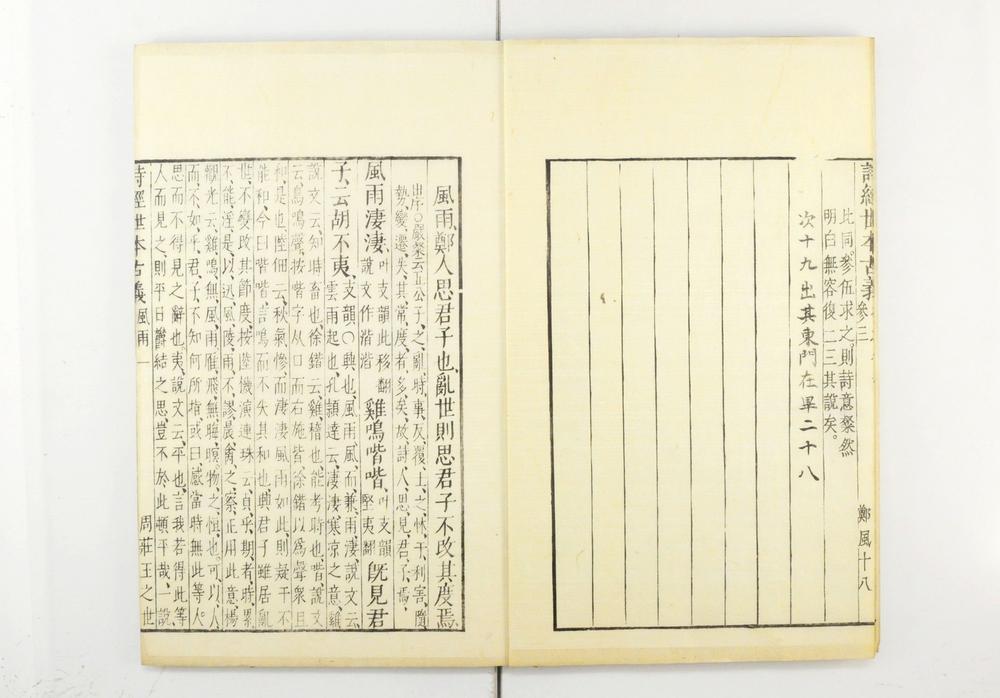 詩經世本古義
卷三
鄭風十八
比同。參伍求之。則詩意粲然
明白無容復二三其說矣。
次十九出其東門在單二十八
風雨鄭人思君子也亂世則思君子不改其度焉
出序○嚴粲云五公子之亂時事反覆士之怵于利害隨
勢變遷失其常度者多矣故詩人思見君子焉
風雨淒淒
叶支韻此移翻
說文作湝湝
雞鳴喈喈
叶支韻
堅夷翻
旣見君
子云胡不夷
支韻○興也風雨風而兼雨淒說文云
雲雨起也孔穎達云淒淒寒涼之意雞
說文云知時畜也徐鍇云雞稽也能考時也喈說文
云鳥鳴聲按喈字从口而右施皆徐鍇以爲聲衆且
和是也陸佃云秋氣慘而淒淒風雨如此則疑于不
能和今曰喈喈言鳴而不失其和也興君子雖居亂
世不變改其節度按陸機演連珠云貞乎期者時累
不能淫是以迅風陵雨不謬晨禽之察正用此意楊
觀光云雞鳴無風雨雁飛無晦暝物之恒也可以人
而不如乎君子不知何所指或曰感當時無此等人
思而不得見之辭也夷說文云平也言我若得此等
人而見之則平日鬱結之思豈不於此頓平哉一說
詩經世本古義
風雨
一
周莊王之世